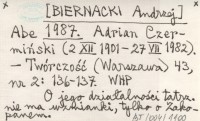 [BIERNACKI Andrzej]
Abe 1987. Adrian Czer-
miński (2 XII 1901 - 27 VIII 1982).
– Twórczość (Warszawa) 43,
nr 2: 136-137. WHP
O jego działalności tatrz.
nie ma wzmianki, tylko o Zako-
panem.
BJ/004/1100